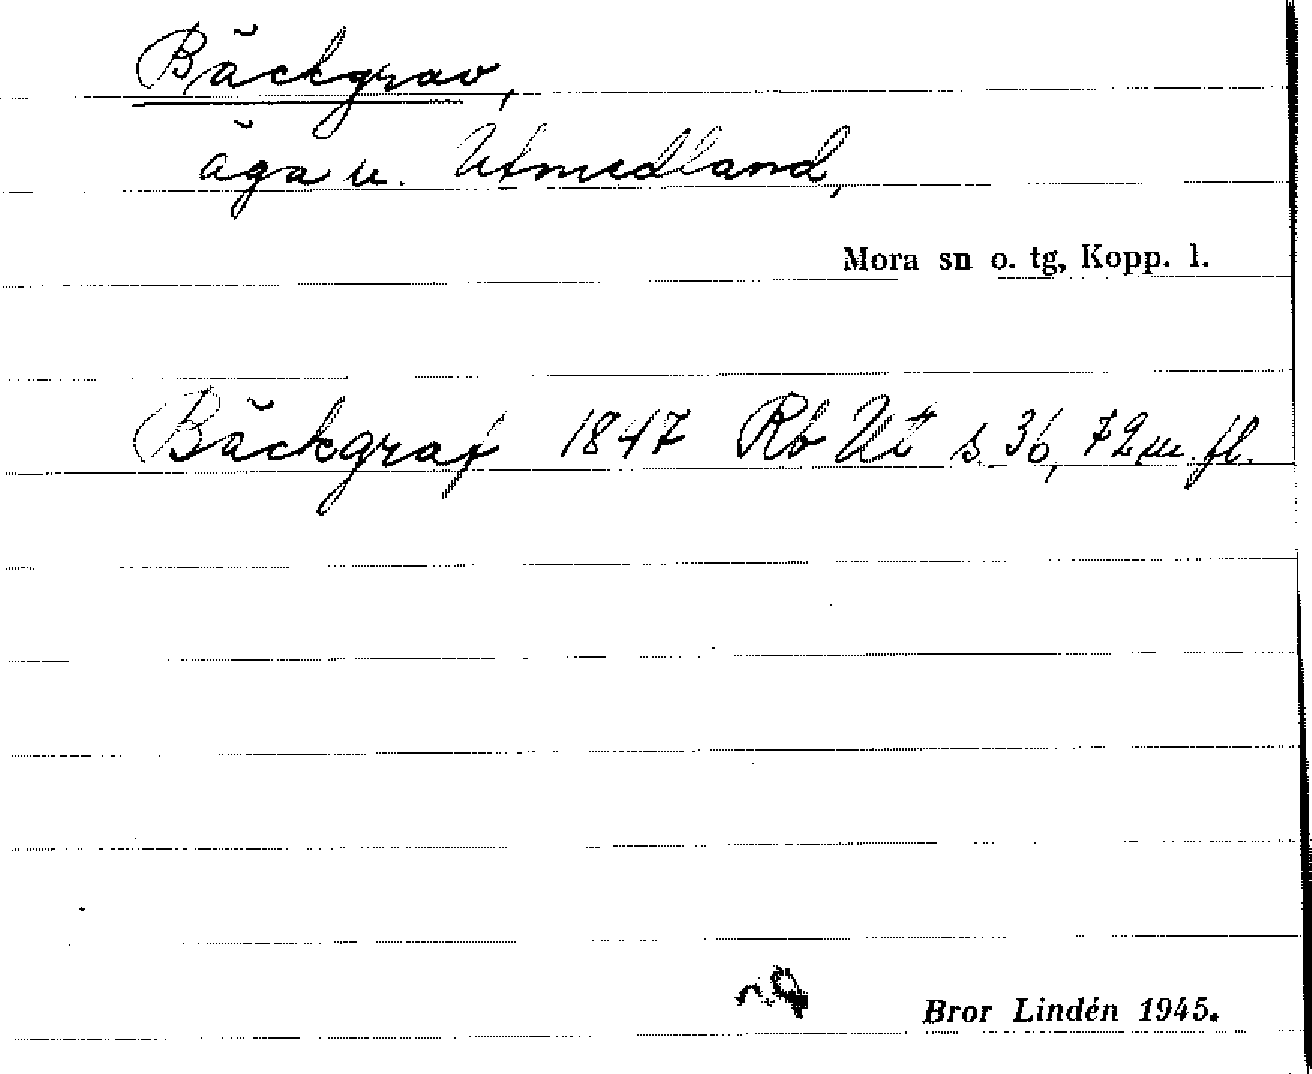 Bäckgrav,
äga u. Utmedland,
Mora sn o. tg, Kopp. l.
Bäckgraf 1847 Rb Ut s. 36, 72 m. fl.
Bror Lindén 1945.